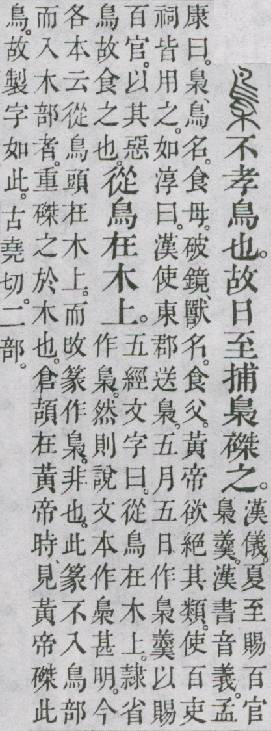 梟不孝鳥也。故日至捕梟磔之。
漢儀。夏至賜百官
梟羹。漢書音義。孟
康曰。梟鳥名。食母。破鏡獸名。食父。黃帝欲絕其類。使百吏
祠皆用之。如淳曰。漢使東郡送梟。五月五日作梟羹以賜
百官。以其惡
鳥故食之也。
從鳥在木上。
五經文字曰。從鳥在木上。隷省
作梟。然則說文本作梟甚明。今
各本云從鳥頭在木上。而改篆作梟。非也。此篆不入鳥部
而入木部者。重磔之於木也。倉頡在黃帝時。見黃帝磔此
鳥。故製字如此。古堯切。二部。